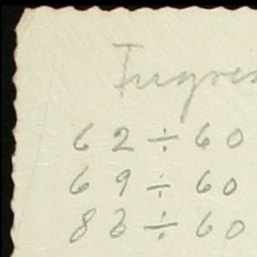 Ingres
62 ÷ 60
69 ÷ 60
83 ÷ 60